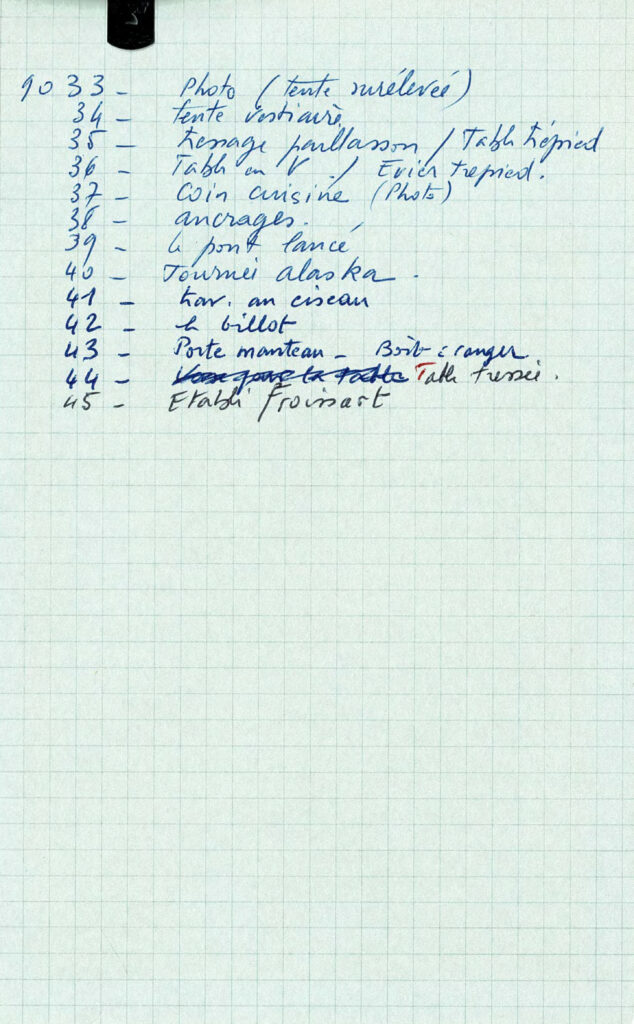 9033 - Photo (tente surélevée)
34 - tente vestiaire
35 - tressage paillasson / Table trépied
36 - Table en V. / Evier trepied.
37 - Coin cuisine (Photo)
38 - ancrages.
39 - le pont lancé
40 - Tournée alaska.
41 - trav. au ciseau
42 - le billot
43 - Porte manteau - Boîte à ranger.
44 - Table tressée.
45 - Etabli Froissart